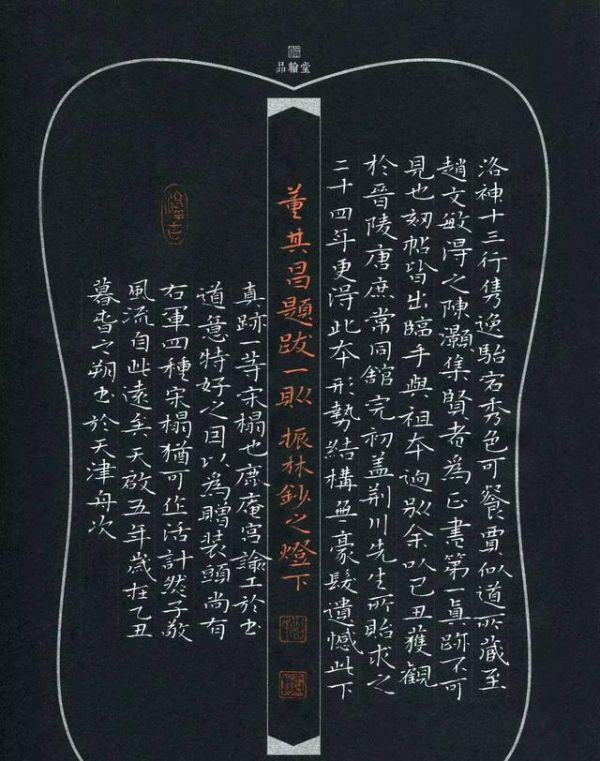 品翰堂
洛神十三行隽逸駘宕秀色可餐賈似道所藏至
趙文敏得之陳灝集賢者為正書第一真跡不可
見也刻帖皆出臨手與祖本迥別余以己丑獲觀
於晉陵唐庶常同館完初盖荆川先生所貽求之
二十四年更得此本形勢結構無豪髮遺憾此下
董其昌題跋一則 振林鈔之燈下
真跡一等宋榻也鹿庵宫諭工於书
道意特好之因以為贈装頭尚有
右軍四種宋榻猶可作活計然子敬
風流自此遠矣天啟五年歲在乙丑
暮春之朔书於天津舟次